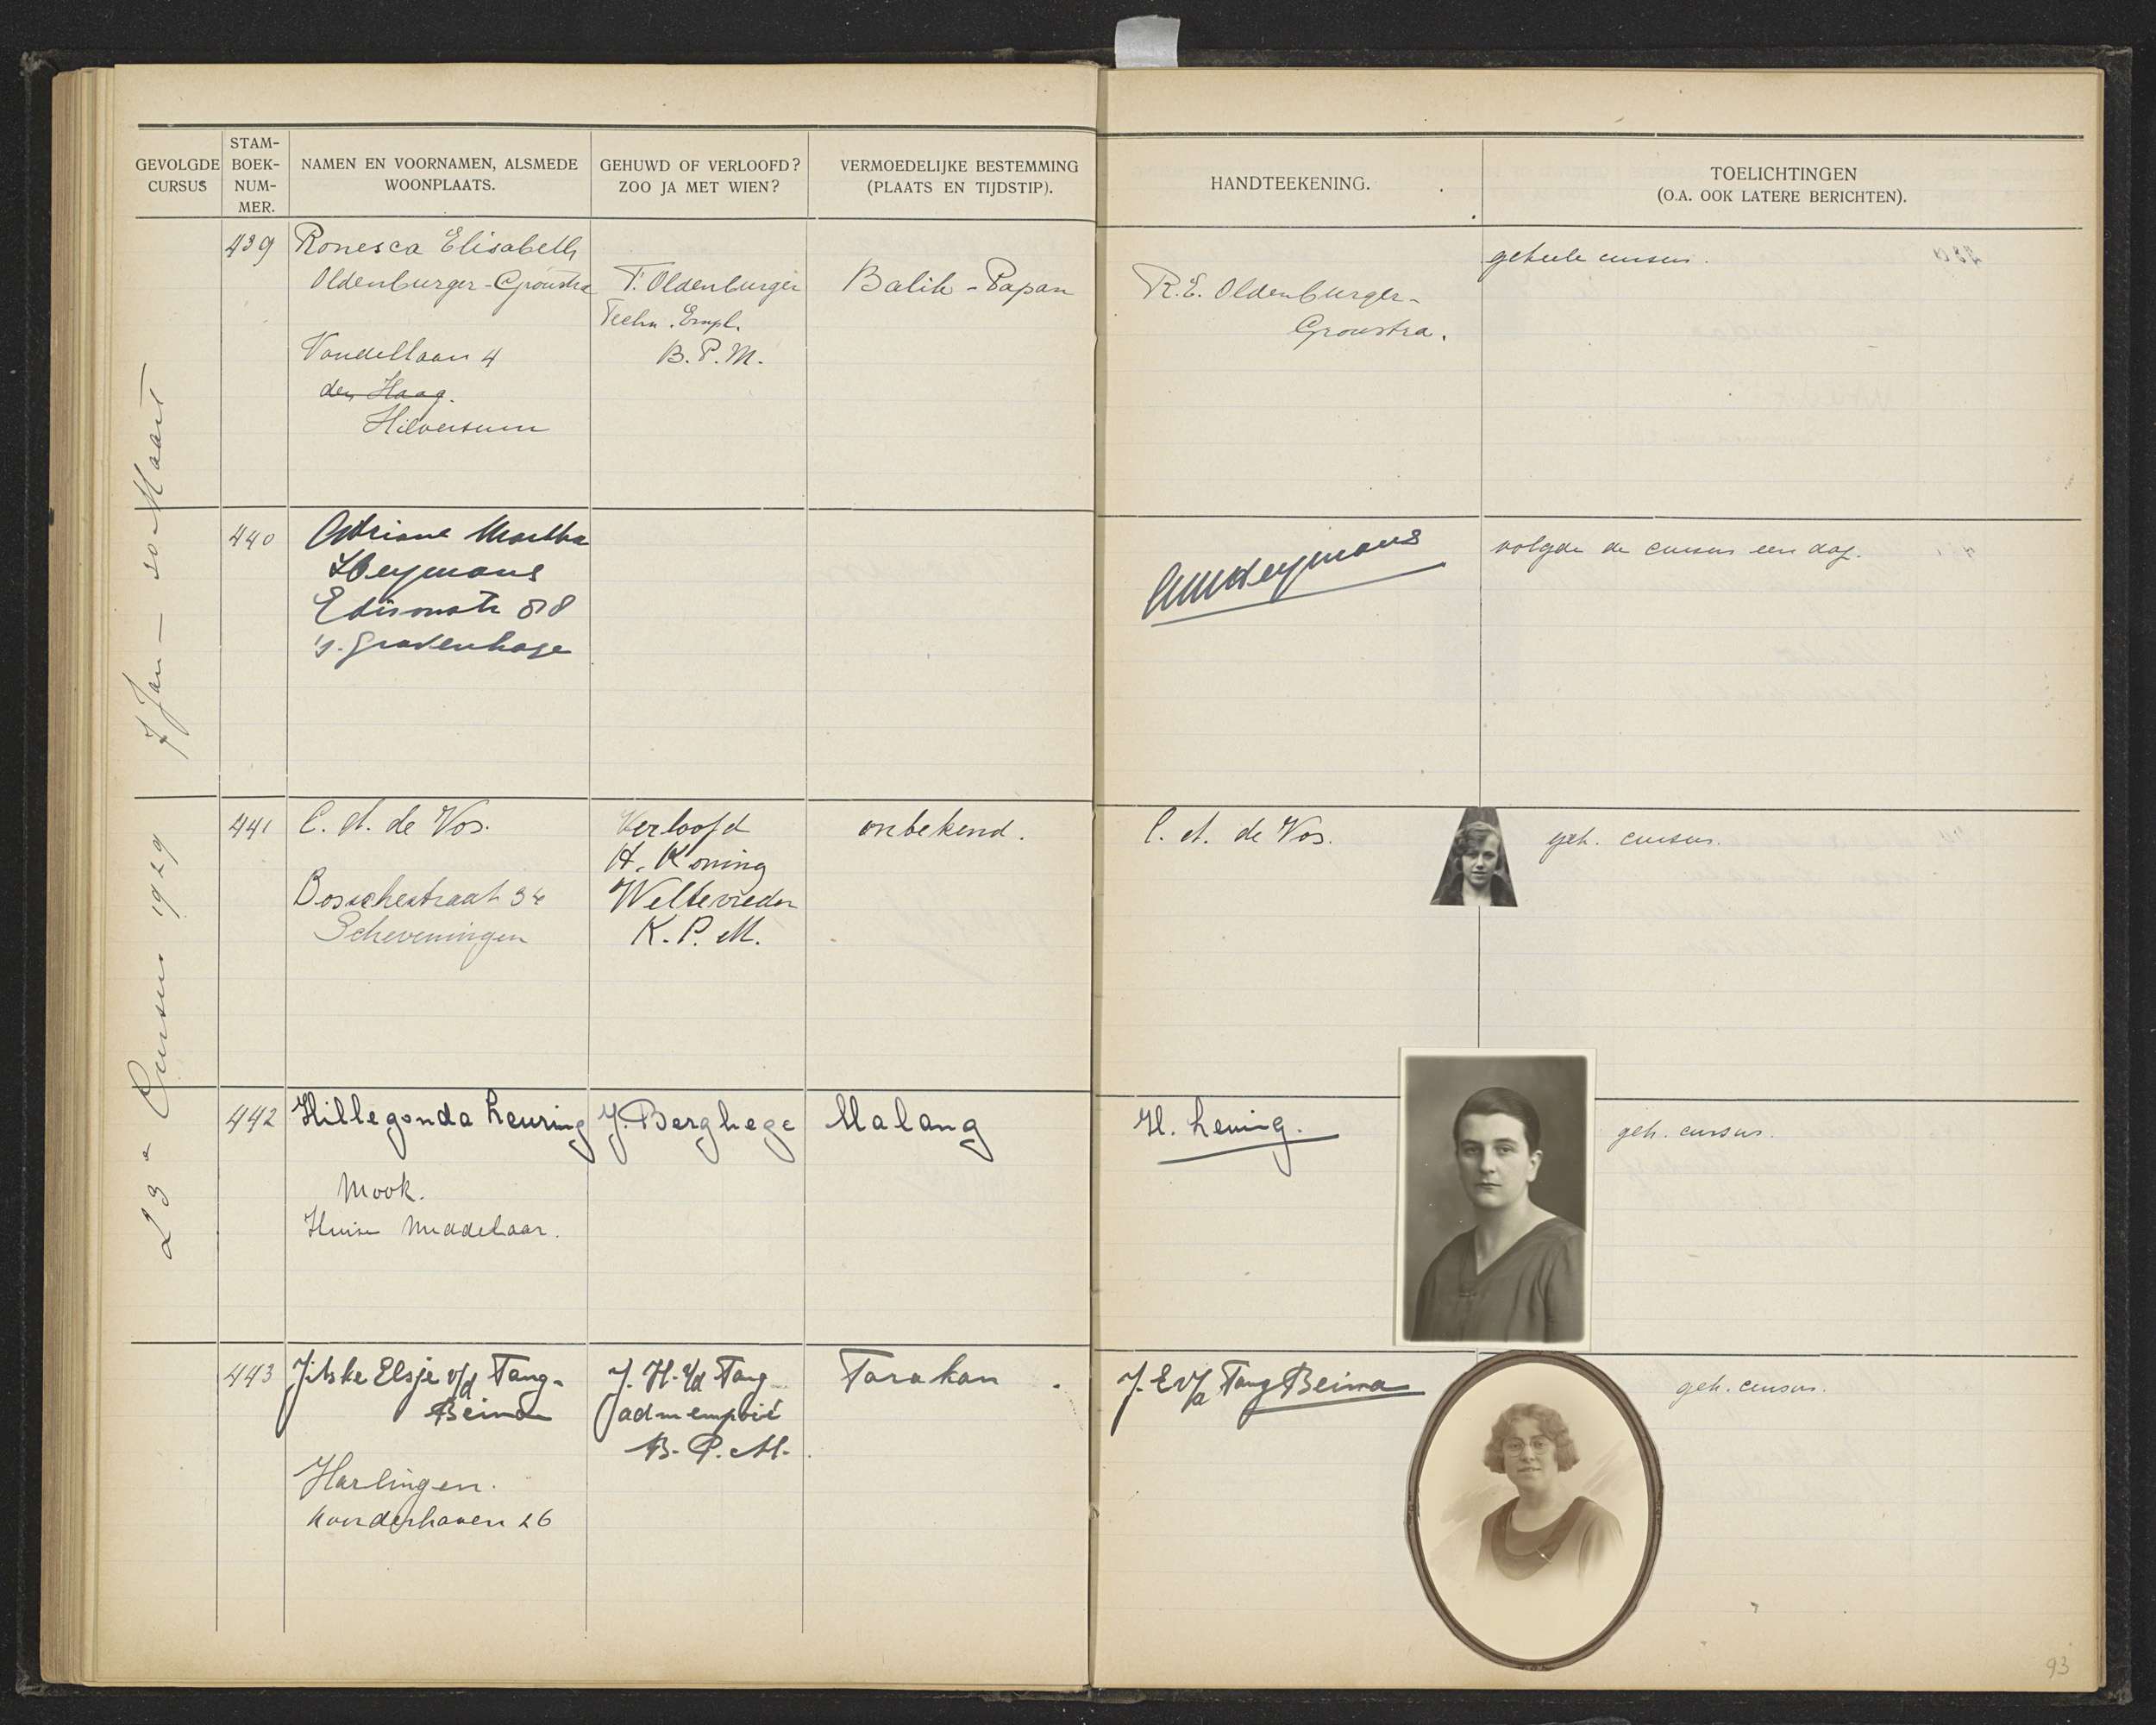 GEVOLGDE
CURSUS
STAM-
BOEK-
NUM-
MER.
NAMEN EN VOORNAMEN, ALSMEDE
WOONPLAATS.
GEHUWD OF VERLOOFD?
ZOO JA MET WIEN?
VERMOEDELIJKE BESTEMMING
(PLAATS EN TIJDSTIP).
HANDTEEKENING.
TOELICHTINGEN
(O.A. OOK LATERE BERICHTEN).
23e Cursus 1929 7 Jan – 20 Maart
439
Ronesca Elisabeth
Oldenburger-Groustra
Vondellaan 4
den Haag.
Hilversum
T. Oldenburger
Techn. Empl.
B.P.M.
Balik-Papan
R.E. Oldenburger-
Groustra.
geheele cursus.
440
Adriana Martha
Heymans
Edisonstr 88
's-Gravenhage
AMHeymans
volgde de cursus een dag.
441
C. A. de Vos.
Bosschestraat 34
Scheveningen
Verloofd
H. Koning
Weltevreden
K.P.M.
onbekend.
C. A. de Vos.
geh. cursus.
442
Hillegonda Leuring
Mook.
Huize Middelaar.
J. Berghege
Malang
H. Leuring.
geh. cursus.
443
Jitske Elsje v/d Tang-
Beima
Harlingen.
Noorderhaven 26
J. H. v/d Tang
(adm employé
B.P.M.
Tarakan
J. E v/d Tang Beima
geh. cursus.
93